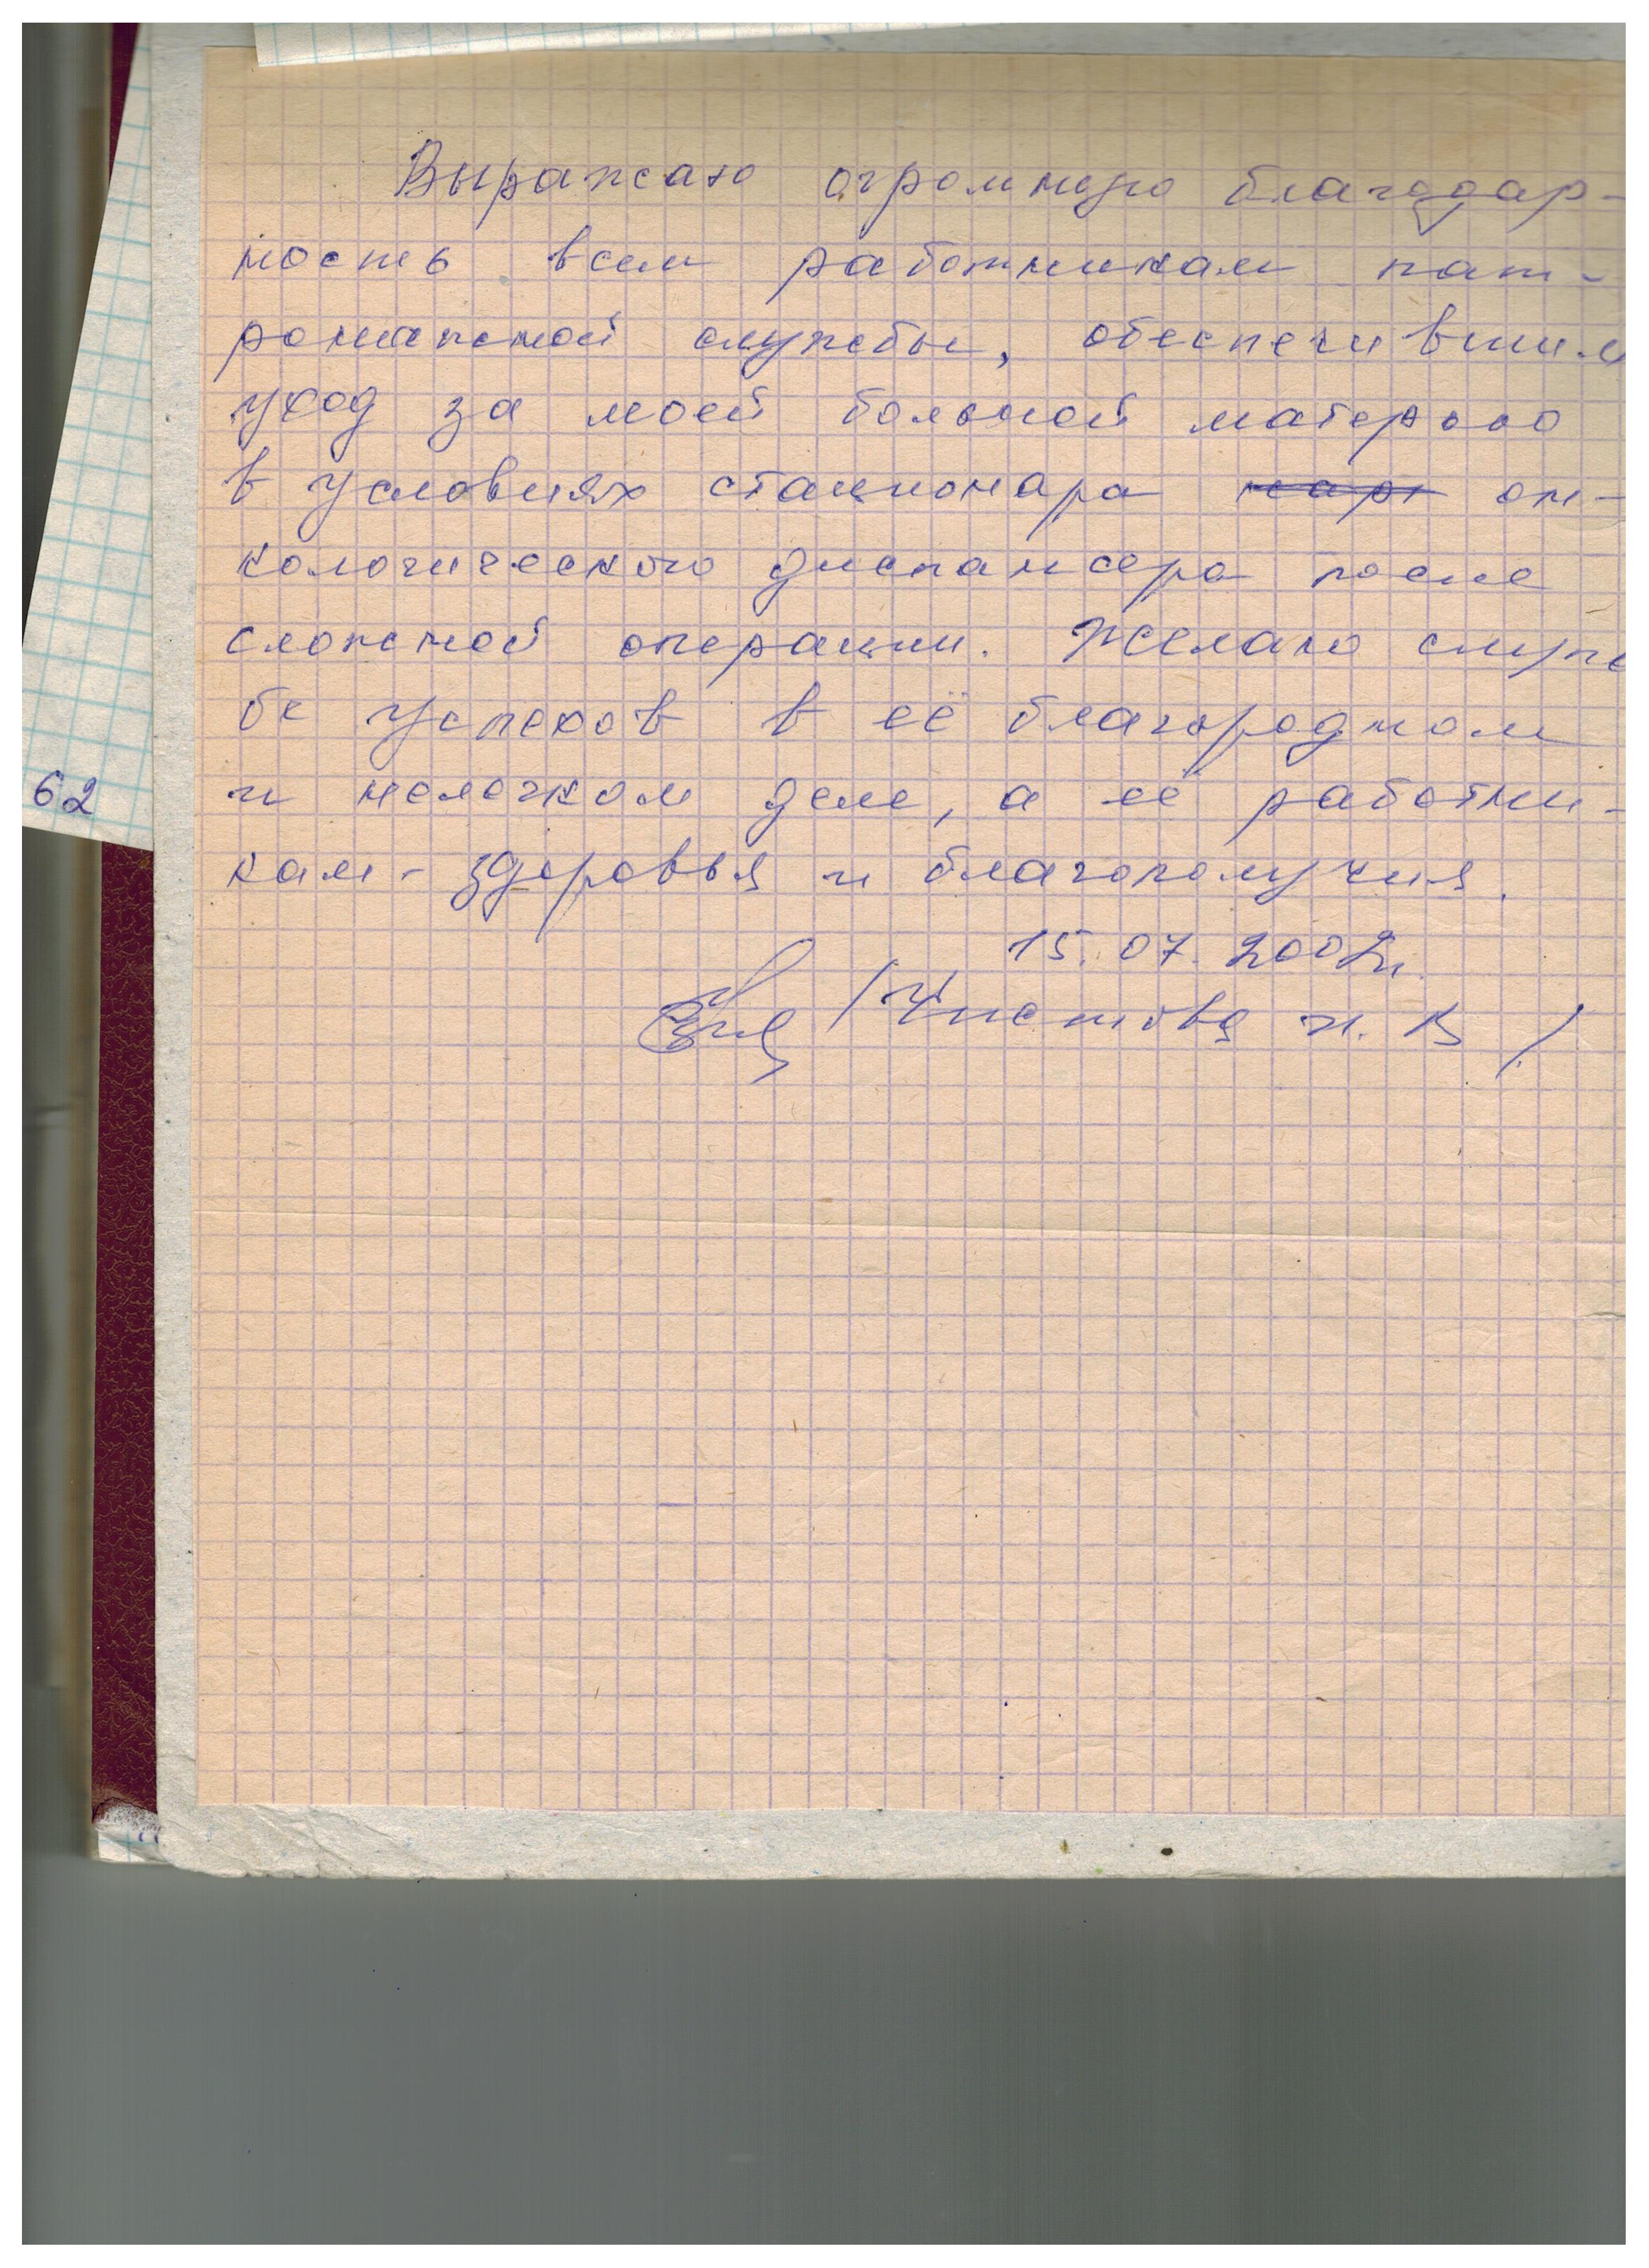 Выражаю огромную благодар-
ность всем работникам пат-
ронажной службы, обеспечившим
уход за моей больной матерью
в условиях стационара он-
кологического диспансера после
сложной операции. Желаю служ
бе успехов в её благородном
и нелегком деле, а её работни-
62
кам - здоровья и благополучия.
15.07.2002г.
/Чистова Н. В /